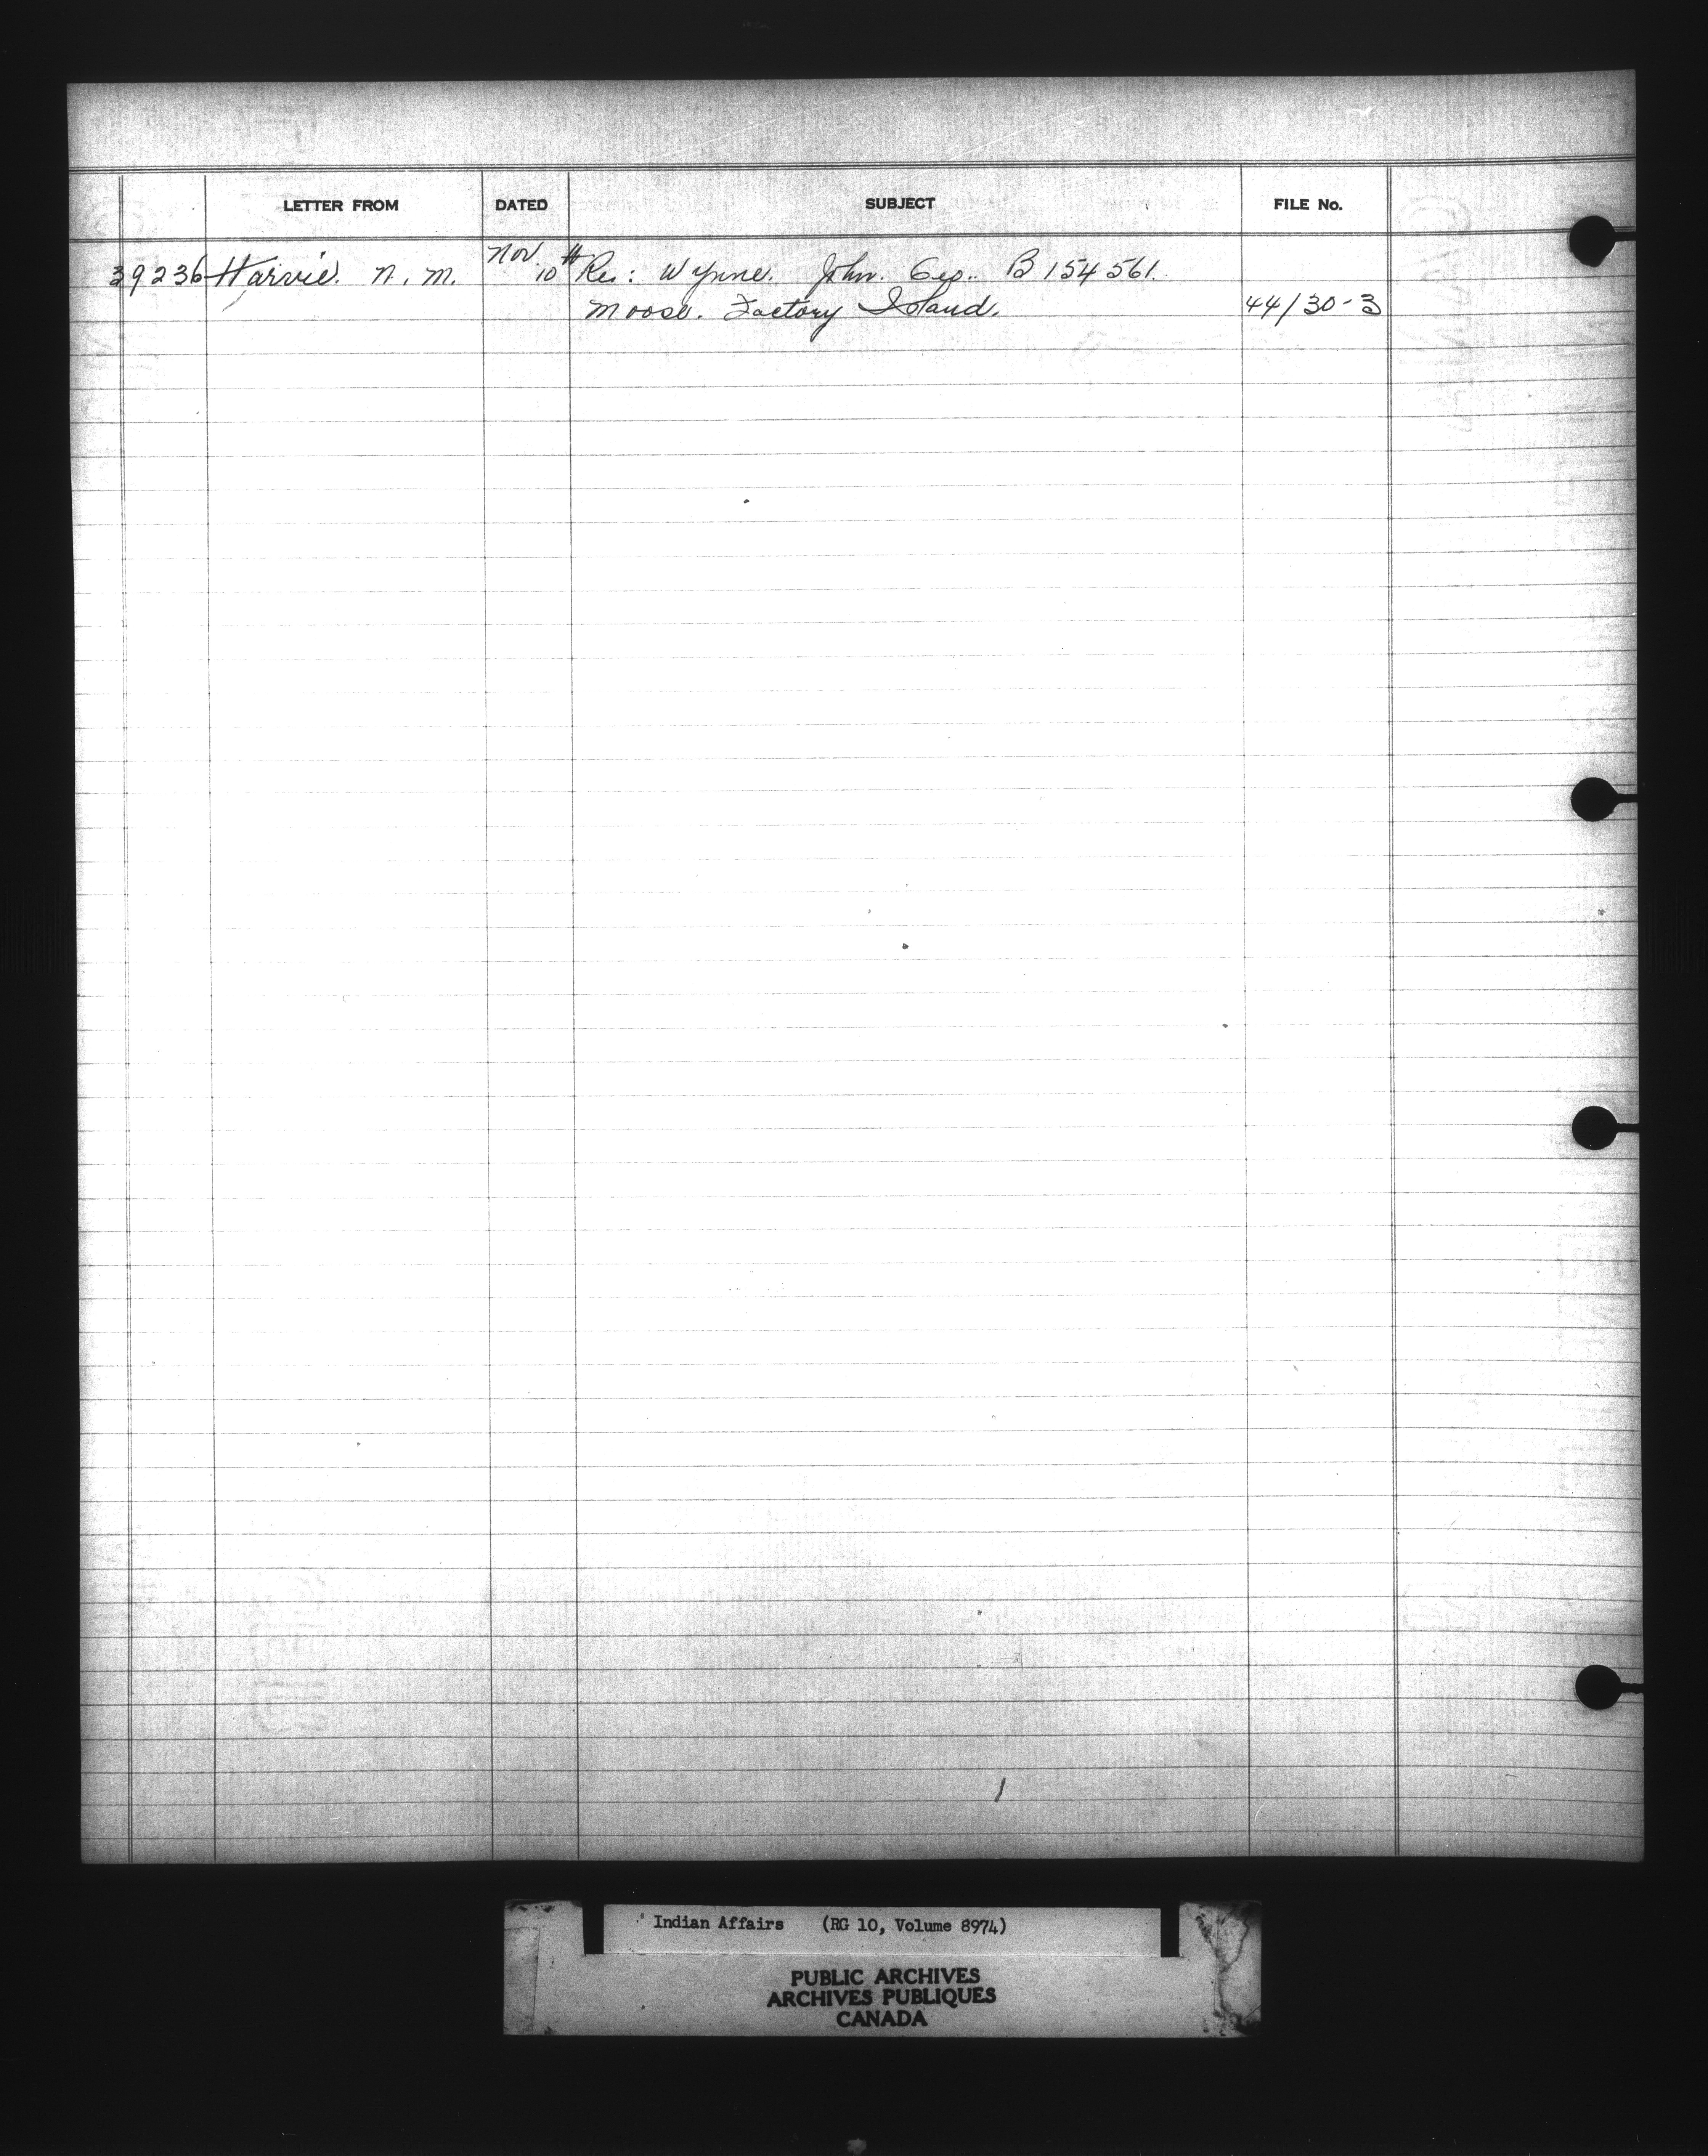 LETTER FROM DATED SUBJECT FILE No.
39236 Harvie. N. M. Nov. 10th Re: Wynne. John. Geo. B154561.
Moose. Factory Island. 44/30-3
Indian Affairs (RG 10, Volume 8974)
PUBLIC ARCHIVES
ARCHIVES PUBLIQUES
CANADA